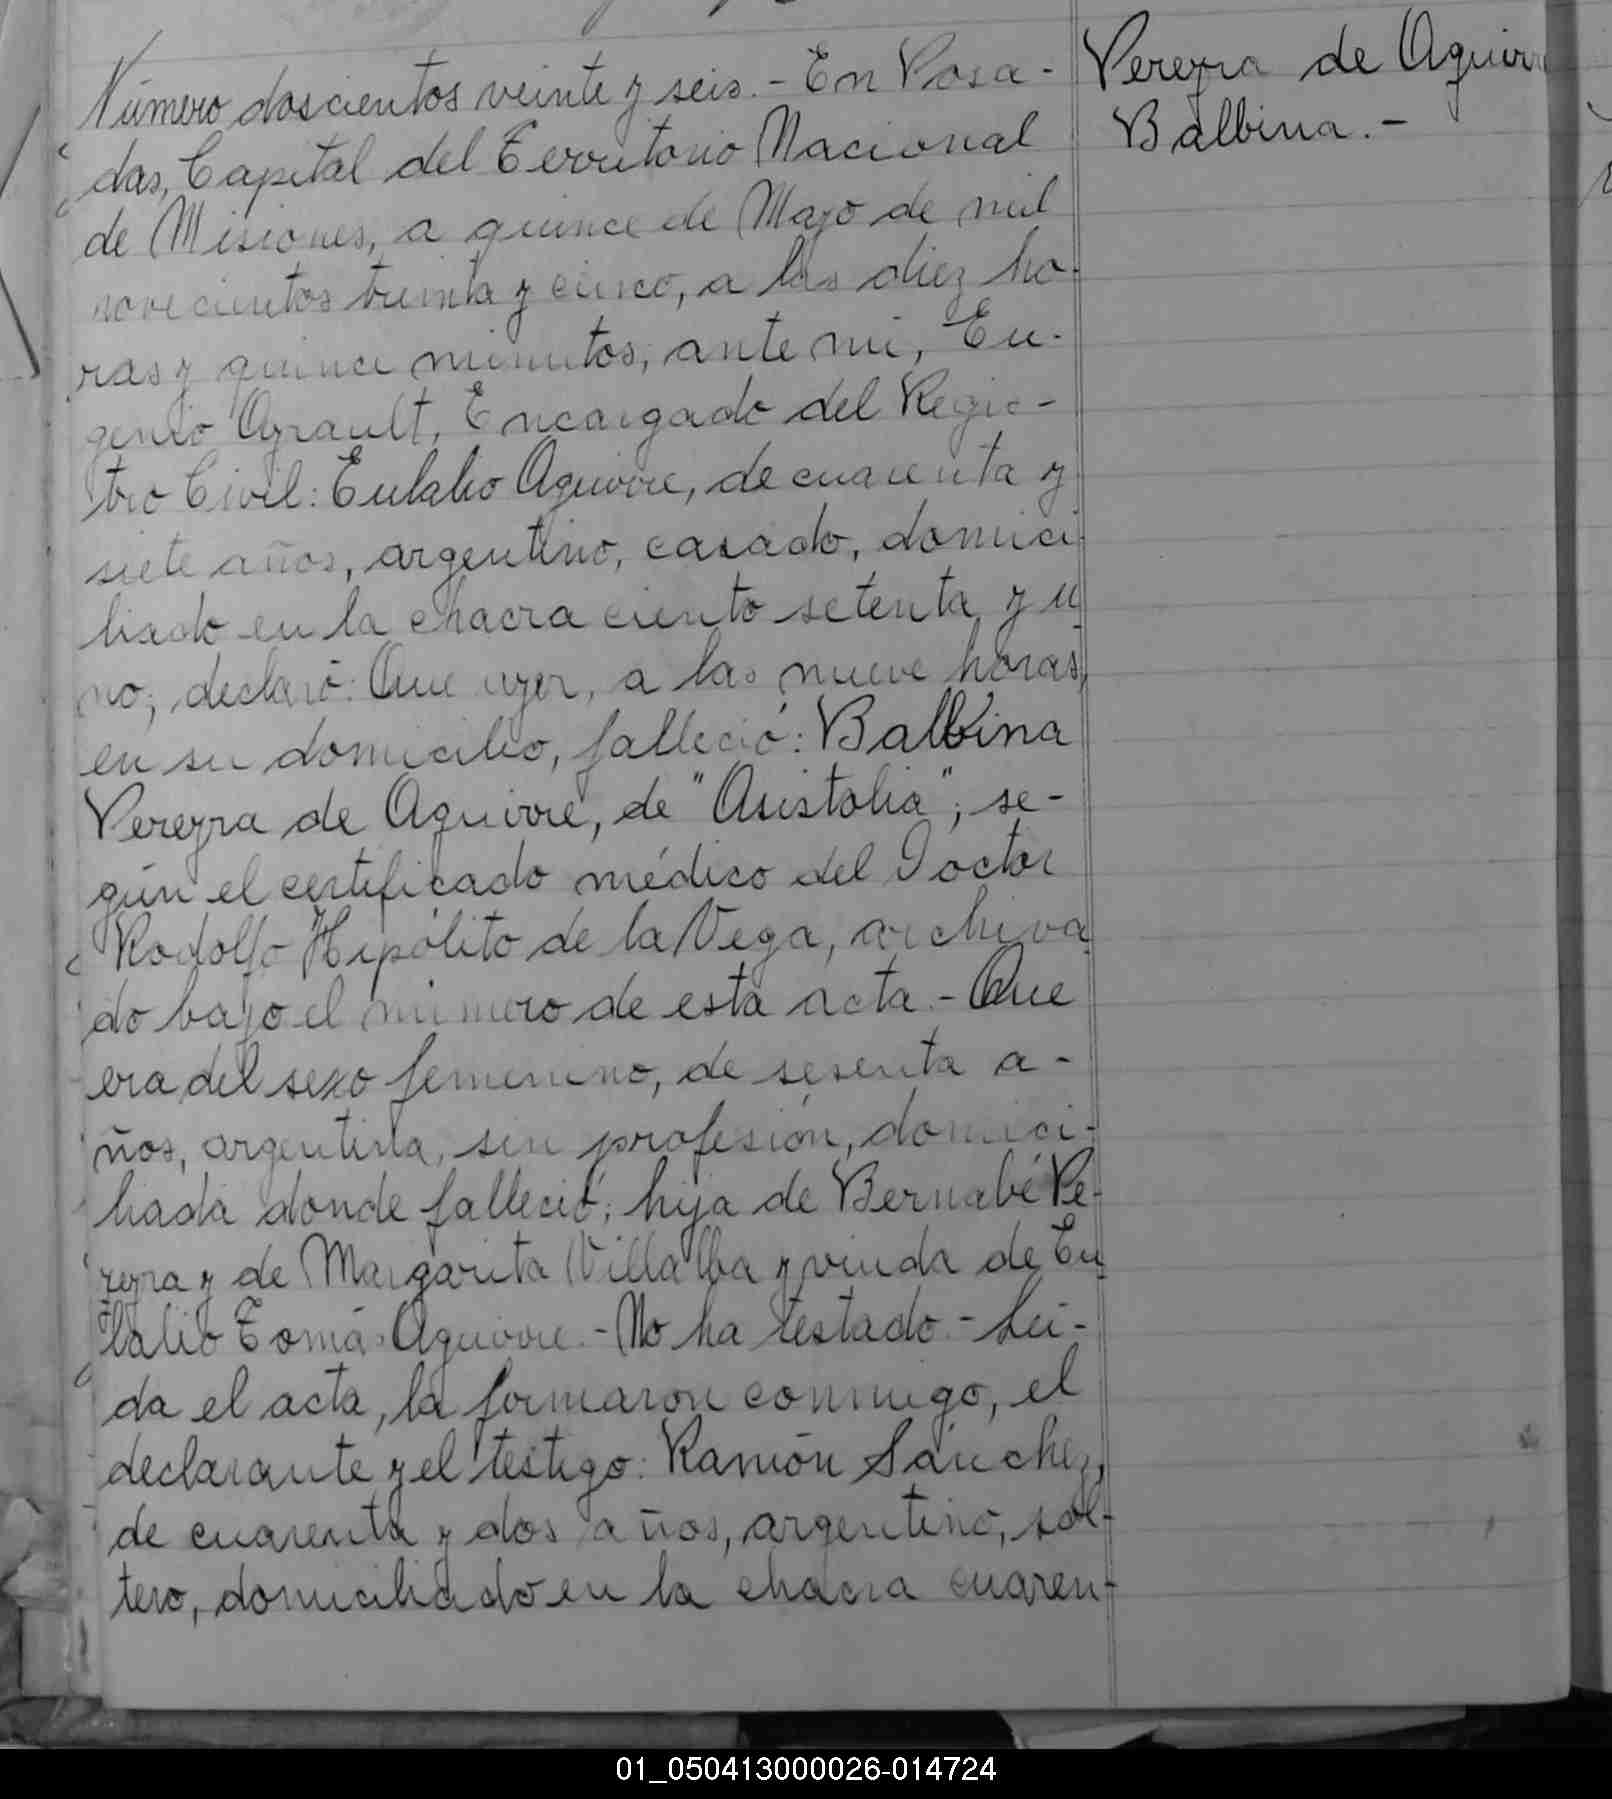 Número doscientos veinte y seis.- En Posa-
das, Capital del Territorio Nacional
de Misiones, a quince de Mayo de mil
novecientos treinta y cinco, a las diez ho-
ras y quince minutos, ante mi, Eu-
genio Ayrault, Encargado del Regis-
tro Civil: Eulalio Aguirre, de cuarenta y
siete años, argentino, casado, domici-
liado en la chacra ciento setenta y u
no; declaró: Que ayer, a las nueve horas,
en su domicilio, falleció: Balbina
Pereyra de Aguirre, de "Asistolia"; se-
gún el certificado médico del Doctor
Rodolfo Hipólito de la Vega, archiva
do bajo el número de esta acta.- Que
era del sexo femenino, de sesenta a-
ños, argentina, sin profesión, domici-
liada donde falleció; hija de Bernabé Pe-
reyra y de Margarita Villalba y viuda de Eu
lalio Tomás Aguirre.- No ha testado.- Leí-
da el acta, la firmaron conmigo, el
declarante y el testigo: Ramón Sánchez,
de cuarenta y dos años, argentino, sol-
tero, domiciliado en la chacra cuaren-
Pereyra de Aguirre
Balbina.-
01_050413000026-014724